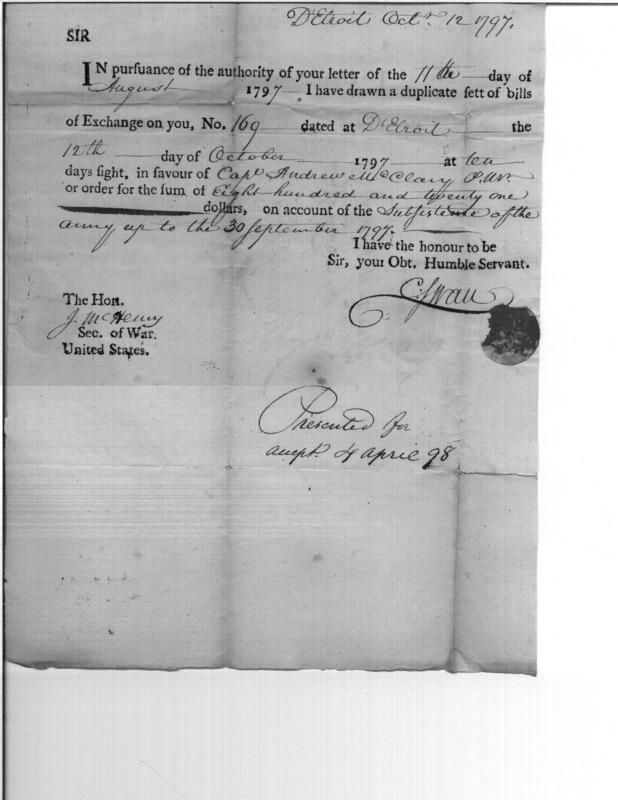 D'Etroit Octr. 12 1797.
SIR
IN pursuance of the authority of your letter of the 11th day of
August 1797 I have drawn a duplicate sett of bills
of Exchange on you, No. 169 dated at D'Etroit the
12th day of October 1797 at ten
days sight, in favour of Capt Andrew McClary
or order for the sum of Eight hundred and twenty one
dollars, on account of the Subsistence of the
army up to the 30 September 1797.
I have the honour to be
Sir, your Obt. Humble Servant.
C Swan
The Hon.
J. McHenry
Sec. of War.
United States.
Presented for
accept. 4 April 98